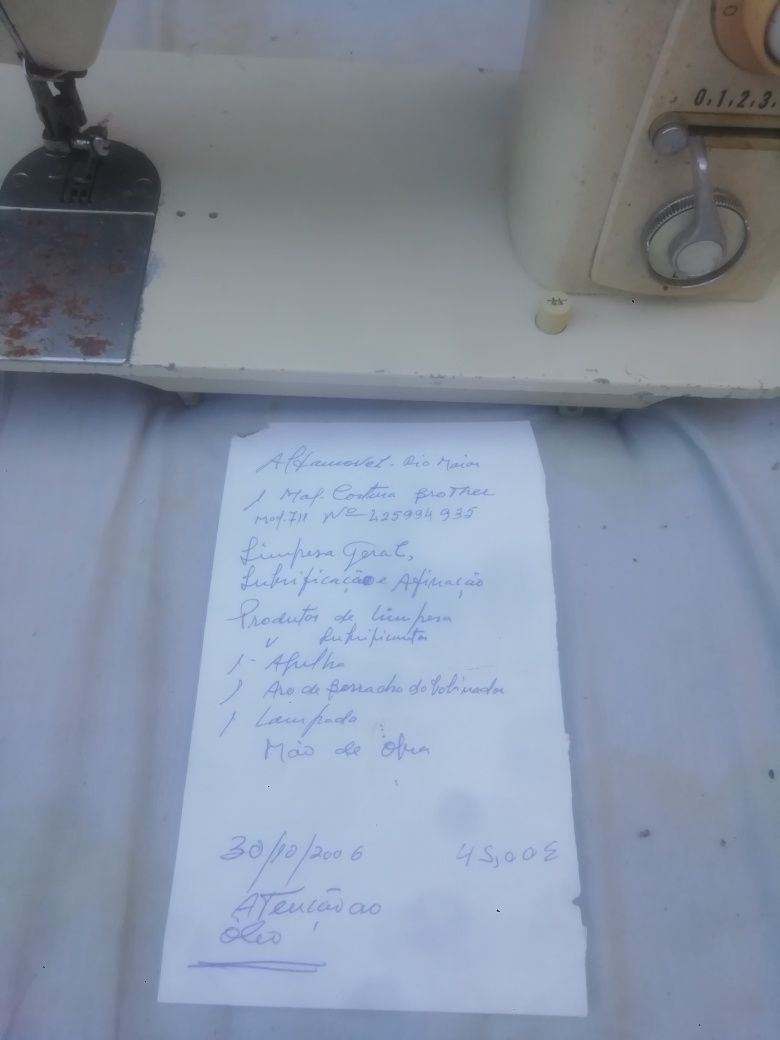 0.1.2.3.
Alfamovel. Rio Maior
1 Maq. Costura Brother
Mod. 711 Nº 425994935
Limpesa Geral,
Lubrificação e Afinação
Produtos de limpesa
v Lubrificantes
1 - Agulha
1 Aro de Borracha do bobinador
1 Lampada
Mão de obra
30/10/2006 45,00€
Atenção ao
Óleo